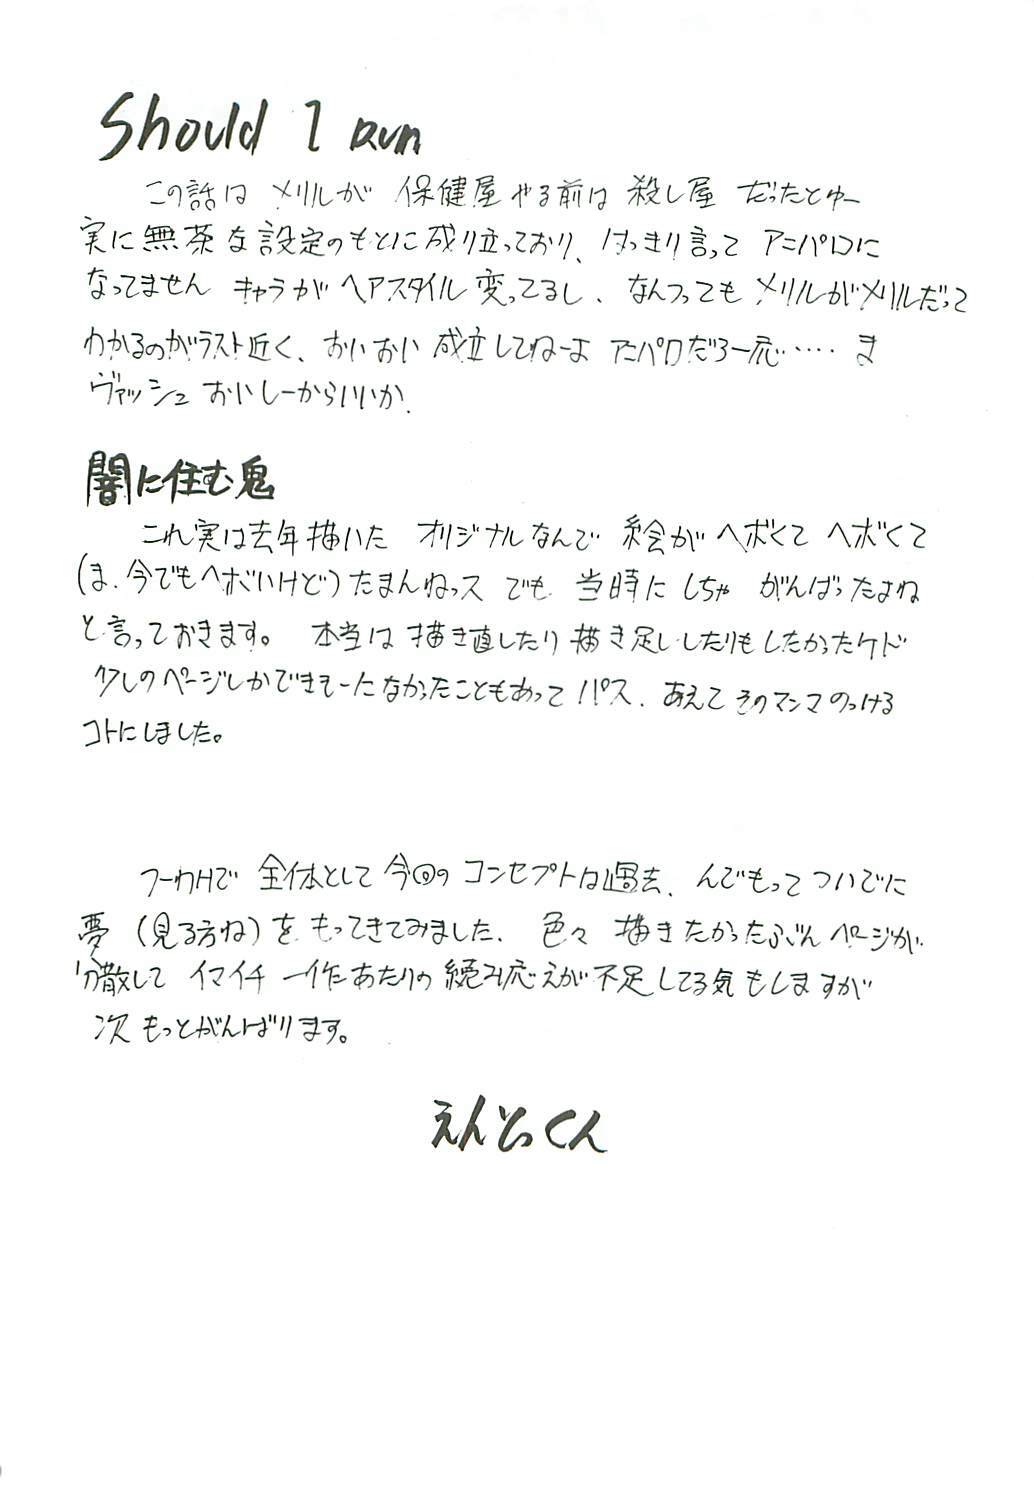 Should I Run
この話は メリルが 保健屋 やる前は 殺し屋 だったとゆー
実に無茶な設定のもとに成り立っており、はっきり言って アニパロに
なってません キャラが ヘアスタイル 変ってるし、なんつっても メリルがメリルだって
わかるのがラスト近く、おいおい 成立してねーよ アニパロだろ一応・・・・・ ま
ヴァッシュ おいしーからいいか.
闇に住む鬼
これ実は去年描いた オリジナルなんで 絵が ヘボくて ヘボくて
(ま、今でもヘボいけど)たまんねっス でも 当時に しちゃ がんばったよね
と言っておきます。 本当は 描き直したり 描き足し したりもしたかったケド
少しのページしかできそーになかったこともあって パス、あえて そのマンマ のっける
コトにしました。
つーわけで 全体として 今回の コンセプトは過去、んでもって ついでに
夢 (見る方ね)を もってきてみました、色々 描きたかったぶん ページが
分散して イマイチ 一作あたりの 読み応えが 不足してる気もしますが
次 もっとがんばります。
くん